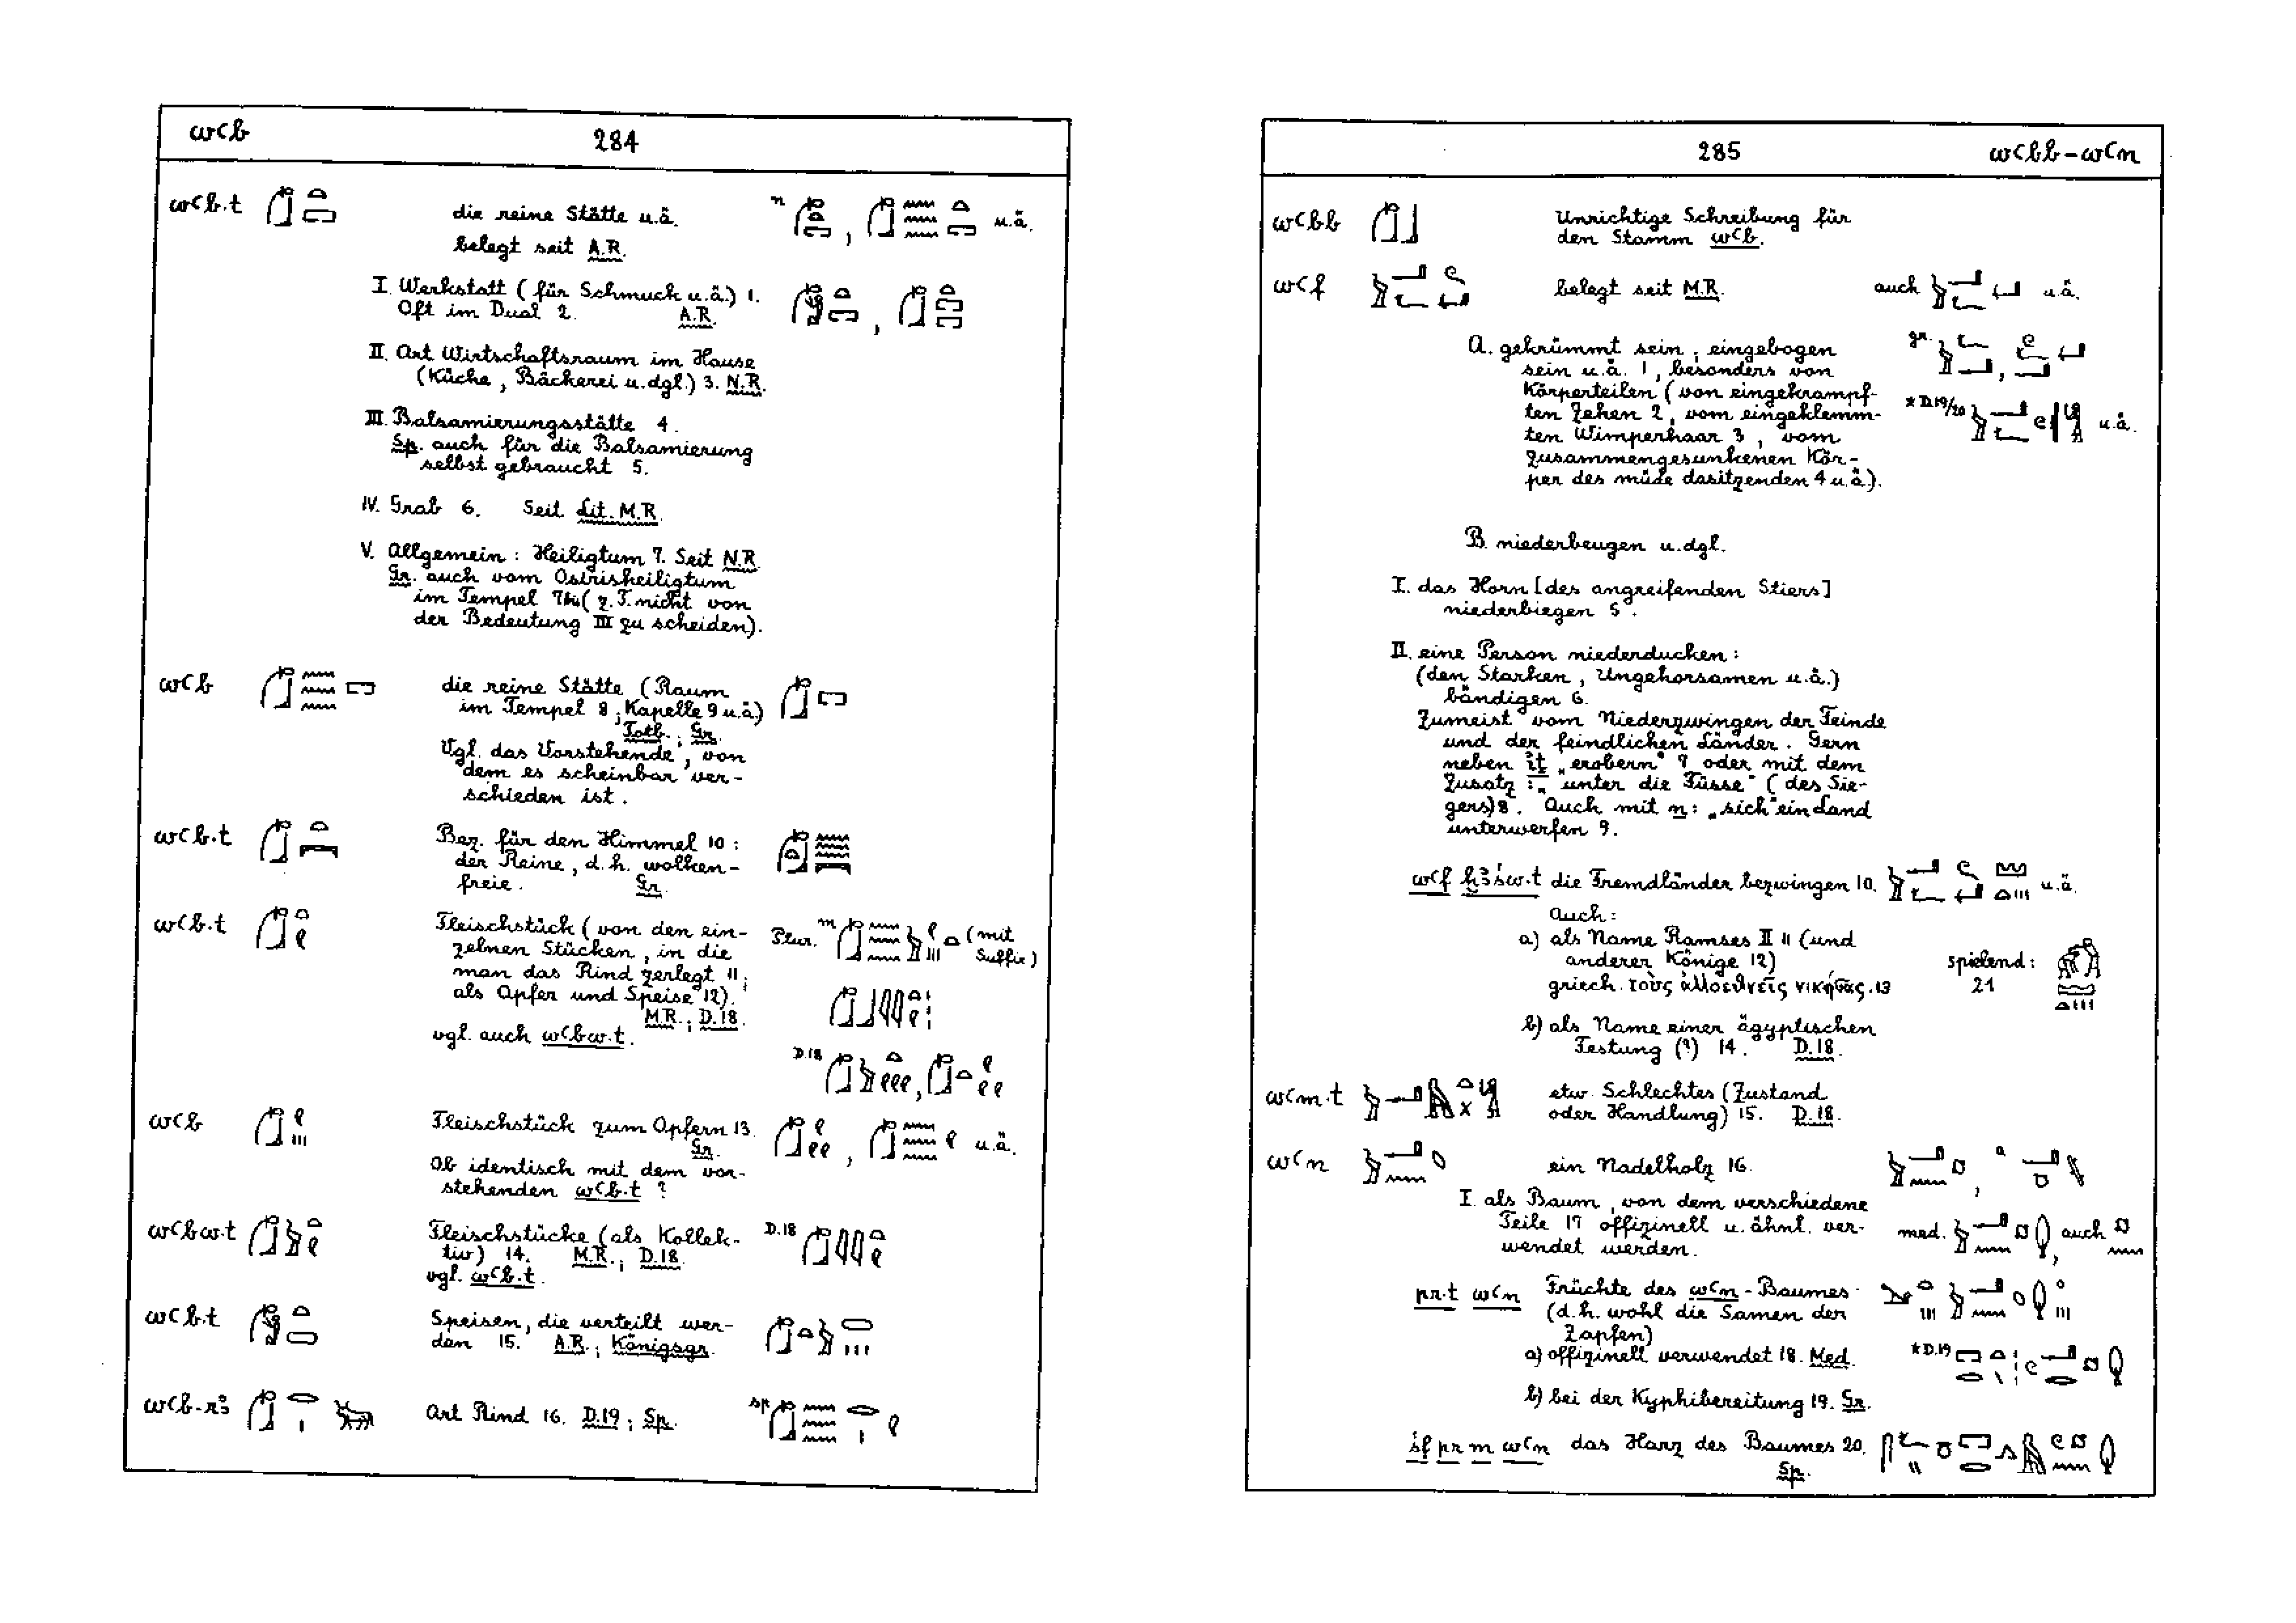 wꜥb 284
wꜥb.t die reine Stätte u.ä. u.ä.
belegt seit A.R.
I. Werkstatt (für Schmuck u.ä.) 1.
Oft im Dual 2. A.R.
II. Art Wirtschaftsraum im Hause
(Küche, Bäckerei u.dgl.) 3. N.R.
III. Balsamierungsstätte 4.
Sp. auch für die Balsamierung
selbst gebraucht 5.
IV. Grab 6. Seit Lit. M.R.
V. Allgemein: Heiligtum 7. Seit N.R.
Gr. auch vom Osirisheiligtum
im Tempel 7bis (z.T. nicht von
der Bedeutung III zu scheiden).
wꜥb die reine Stätte (Raum
im Tempel 8; Kapelle 9 u.ä.)
Totb.; Gr.
Vgl. das Vorstehende, von
dem es scheinbar ver-
schieden ist.
wꜥb.t Bez. für den Himmel 10:
der Reine, d.h. wolken-
freie. Gr.
wꜥb.t Fleischstück (von den ein-
zelnen Stücken, in die
man das Rind zerlegt 11;
als Opfer und Speise 12).
M.R.; D.18.
vgl. auch wꜥbw.t.
Plur. m (mit
Suffix)
D.18
wꜥb Fleischstück zum Opfern 13. u.ä.
Gr.
Ob identisch mit dem vor-
stehenden wꜥb.t ?
wꜥbw.t Fleischstücke (als Kollek- D.18
tiv) 14. M.R.; D.18.
vgl. wꜥb.t.
wꜥb.t Speisen, die verteilt wer-
den 15. A.R.; Königsgr.
wꜥb-rꜣ Art Rind 16. D.19; Sp. Sp.
285 wꜥbb-wꜥn
wꜥbb Unrichtige Schreibung für
den Stamm wꜥb.
wꜥf belegt seit M.R. auch u.ä.
A. gekrümmt sein, eingebogen gr.
sein u.ä. 1, besonders von
Körperteilen (von eingekrampf-
ten Zehen 2, vom eingeklemm- *D.19/20 u.ä.
ten Wimperhaar 3, vom
zusammengesunkenen Kör-
per des müde dasitzenden 4 u.ä.).
B. niederbeugen u.dgl.
I. das Horn [des angreifenden Stiers]
niederbiegen 5.
II. eine Person niederducken:
(den Starken, Ungehorsamen u.ä.)
bändigen 6.
Zumeist vom Niederzwingen der Feinde
und der feindlichen Länder. Gern
neben iṯ „erobern" 7 oder mit dem
Zusatz: „unter die Füsse" (des Sie-
gers) 8. Auch mit n: „sich" ein Land
unterwerfen 9.
wꜥf ḫꜣśw.t die Fremdländer bezwingen 10. u.ä.
Auch:
a) als Name Ramses II 11 (und
anderer Könige 12) spielend:
griech. τοὺς ἀλλοεθνεῖς νικήσας. 13 21
b) als Name einer ägyptischen
Festung (?) 14. D.18.
wꜥm.t etw. Schlechtes (Zustand
oder Handlung) 15. D.18.
wꜥn ein Nadelholz 16.
I. als Baum, von dem verschiedene
Teile 17 offizinell u. ähnl. ver- med. auch
wendet werden.
pr.t wꜥn Früchte des wꜥn-Baumes
(d.h. wohl die Samen der
Zapfen)
a) offizinell verwendet 18. Med. *D.19
b) bei der Kyphibereitung 19. Gr.
śf pr m wꜥn das Harz des Baumes 20.
Sp.